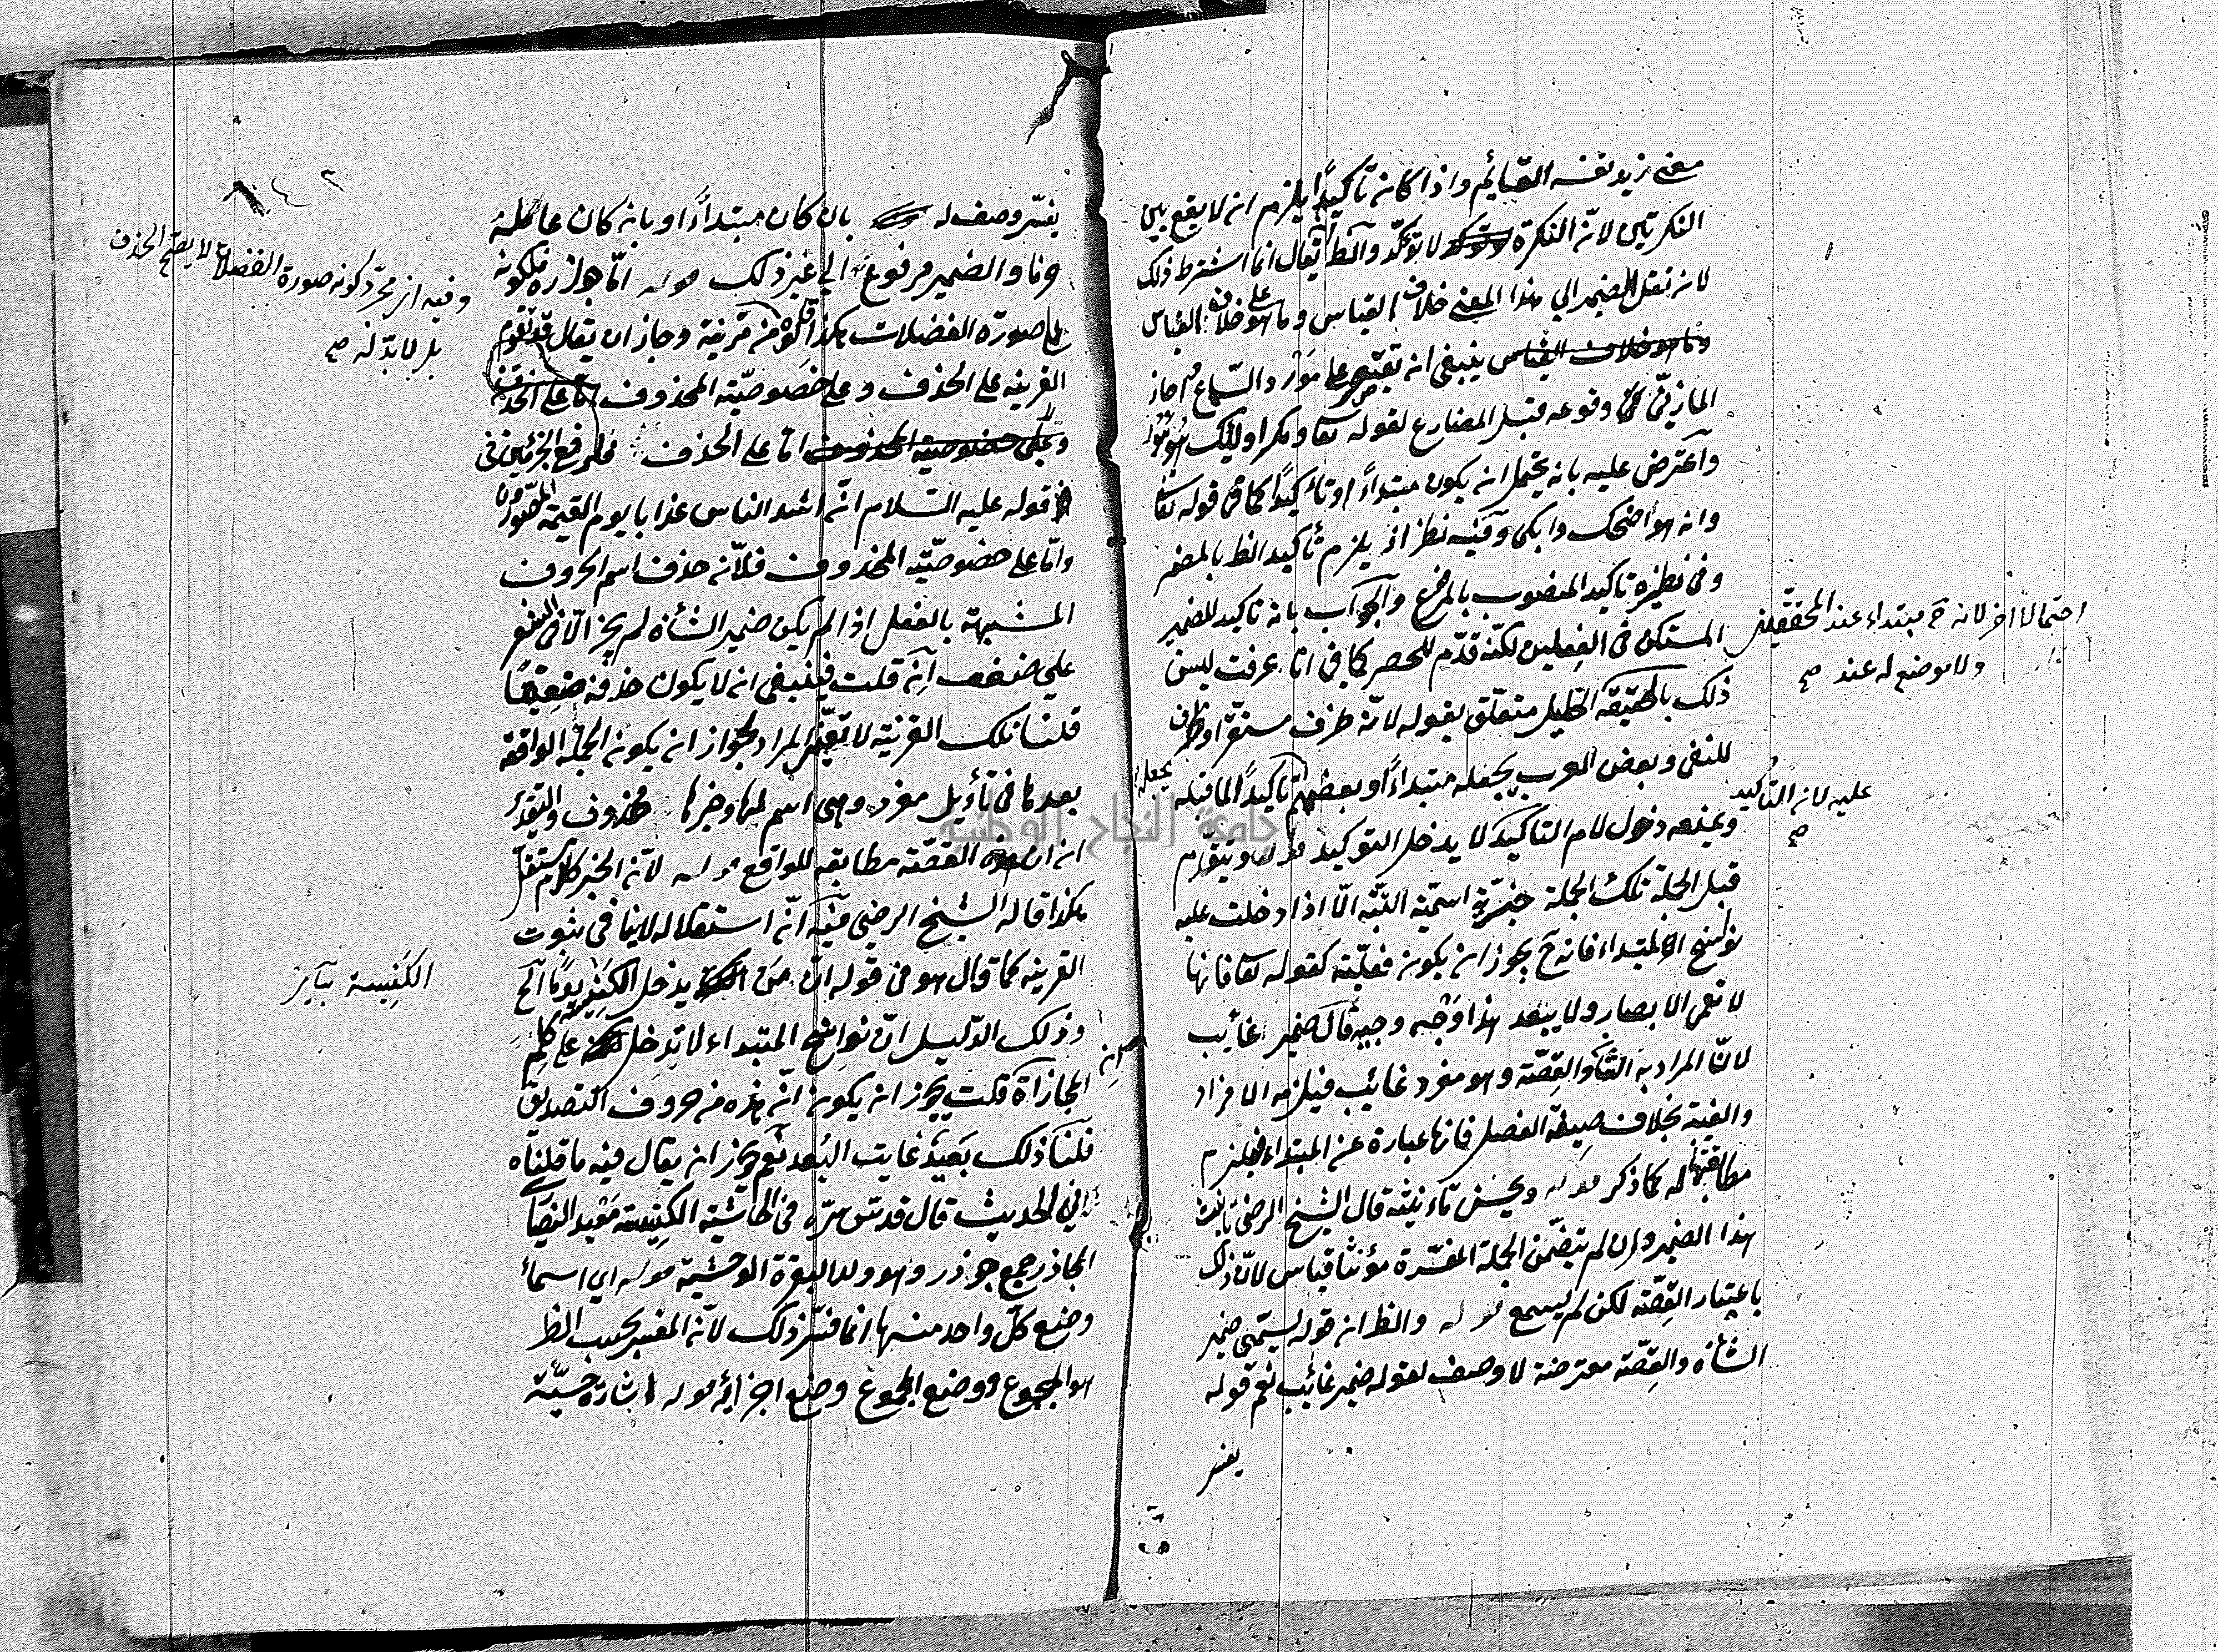 معنى زيد نفسه القائم واذا كان تأكيدًا يلزم ان لا يقع بين
النكرتين لانّ النكرة لا تؤكّد والظ ان يقال انما اشترط ذلك
لانه نقل الضمير الى هذا المعنى خلاف القياس وما هو على خلاف القياس
ينبغي ان يقتصر على مورد السّماع ثم جاز
المازنيّ وقوعه قبل المضارع لقوله تعا ومكر اولئك هو يبور
واعترض عليه بانه يحتمل ان يكون مبتداءً او تأكيدًا كما في قوله تعا
وانه هو اضحك وابكى وفيه نظر اذ يلزم تأكيد الظ بالمضمر
وفي نظيره تاكيد المنصوب بالمرفوع والجواب بانه تاكيد للضمير
المستكن في الفعلين لكنّه قدّم للحصر كما في انا عرفت ليس
احتمالا اخر لانه ح مبتداء عند المحققين
ولا موضع له عند صح
ذلك بالحقيقة الخليل متعلّق بقوله لانّه ظرف مستقرّ او ظرف
للنفي وبعض العرب يجعله مبتداءً او بعضهم يجعله تاكيدًا لما قبله
ويمنعه دخول لام التاكيد لا يدخل التوكيد قوله ويتقدّم
عليه لانه التأكيد
صح
قبل الجملة تلك الجملة خبريّة اسميّة البتّة الّا اذا دخلت عليه
نواسخ الابتداء فانه ح يجوز ان يكون فعليّة كقوله تعا فانها
لا تعمى الابصار ولا يبعد هذا وجه وجيه قال ضمير غائب
لانّ المراد به الشأن والقصّة وهو مفرد غائب فيلزمه الافراد
والغيبة بخلاف صيغة الفصل فانها عبارة عن المبتداء فيلزم
مطابقتها له كما ذكر قوله ويحسن تأنيثه قال الشيخ الرضي تأنيث
هذا الضمير وان لم يتضمّن الجملة المفسّرة مؤنثا قياس لانّ ذلك
باعتبار القصّة لكن لم يسمع قوله والظ ان قوله يسمّى ضمير
الشأن والقصّة معترضة لا وصف لقوله ضمير غائب نعم قوله
يفسر
١٤٢
يفسّر وصف له بان كان مبتداءً او بان كان عامله
حرفا والضمير مرفوع الى غير ذلك قوله امّا جوازه فلكونه
على صورة الفضلات هكذا من قرينة وجاز ان يقال قد تقوم
وفيه ان مجرّد كونه صورة الفضلات لا يصحح الحذف
بل لا بدّ له صح
القرينة على الحذف وعلى خصوصيّة المحذوف
امّا على الحذف فلرفع الجزئين في
قوله عليه السّلام انّ اشد الناس عذابا يوم القيمة المصوّرون
وامّا على خصوصيّة المحذوف فلانّه حذف اسم الحروف
المشبهة بالفعل اذا لم يكن ضمير الشأن لم يجز الّا في الشعر
على ضعف ان قلت فينبغي ان لا يكون حذفه ضعيفًا
قلنا تلك القرينة لا تعيّن المراد لجواز ان يكون الجملة الواقعة
بعدها في تأويل مفرد وهي اسم لها وخبرها محذوف والتقدير
ان القصّة مطابقة للواقع قوله لانّ الخبر كلام مستقلّ
هكذا قاله الشيخ الرضي فيه انّ استقلاله لا ينافي ثبوت
القرينة كما قال هو في قوله انّ من يدخل الكنيسة يومًا الخ
الكنيسة
وذلك الدّليل انّ نواسخ المبتداء لا تدخل على كلم
المجازاة ان قلت يجوز ان يكون انّ هذه من حروف التصديق
قلنا ذلك بعيد غايت البُعد نعم يجوز ان يقال فيه ما قلناه
في الحديث قال قدّس سرّه في الحاشية الكنيسة معبد النصارى
الجاذر جمع جوذر وهو ولد البقرة الوحشيّة قوله اي اسماء
وضع كلّ واحد منها انما فسّر ذلك لانّ المفسّر بحسب الظ
هو المجموع ووضع المجموع وضع اجزائه قوله اشارة حسيّة
جامعة النجاح الوطنية